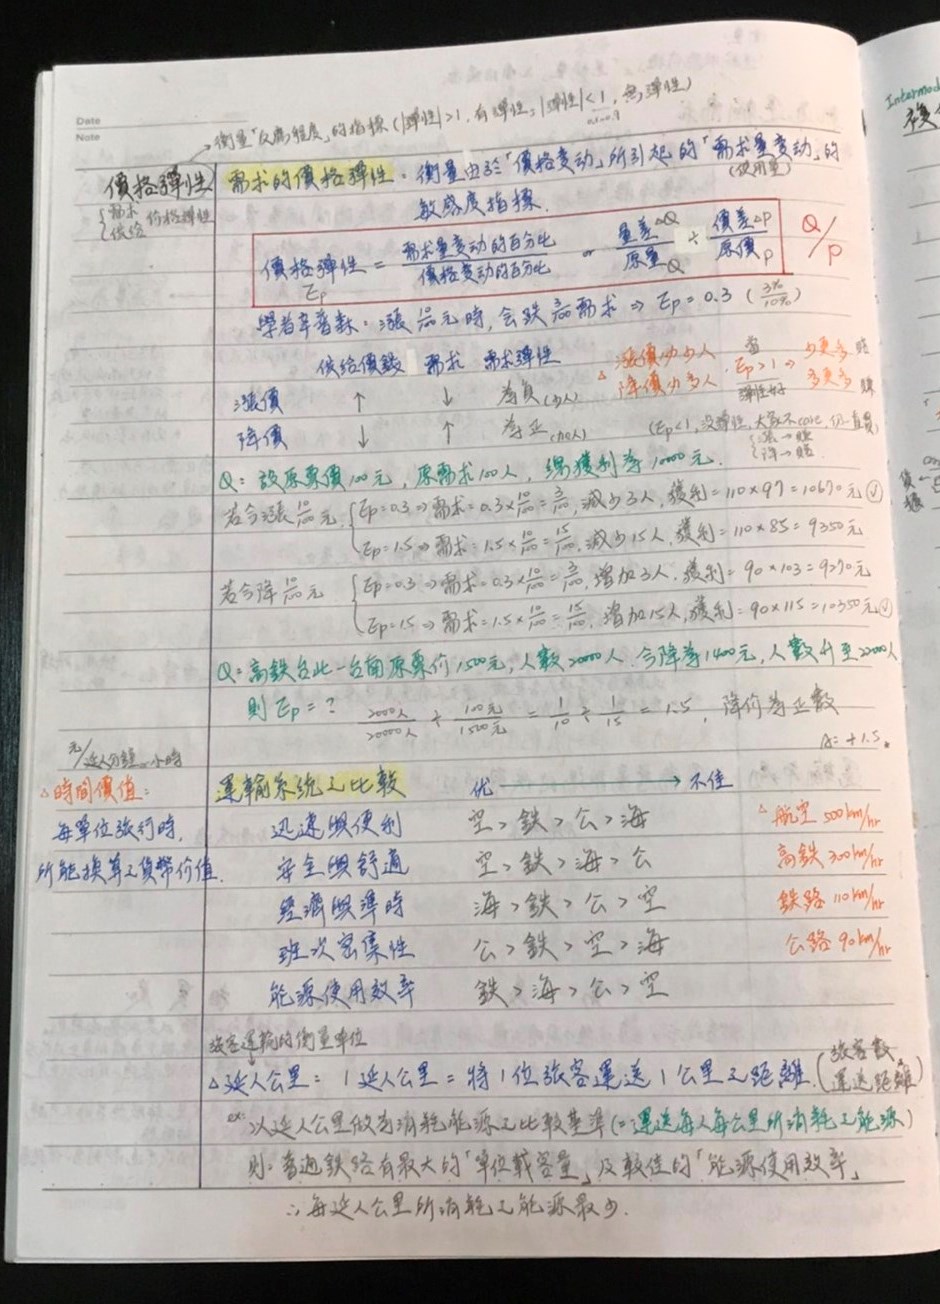 Date
Note
衡量「反應程度」的指標 (|彈性|>1, 有彈性, |彈性|<1, 無彈性)
0.1~0.9
價格彈性
{需求 供给 价格彈性
需求的價格彈性:衡量由於「價格變動」所引起的「需求量變動」的
(使用量)
敏感度指標.
價格彈性 = 需求量變動的百分比/價格變動的百分比 or 量差△Q/原量Q ÷ 價差△P/原價P
Ep
Q/P
學者辛普森:漲10/100元時,会跌3/100需求 ⇒ Ep = 0.3 (3%/10%)
供给價錢 需求 需求彈性
漲價 ↑ ↓ 為負(少人)
降價 ↓ ↑ 為正(加人)
△ 漲價少少人
降價少多人
當 Ep>1 ⇒ 少更多 賠
彈性好 多更多 賺
(Ep<1, 没彈性, 大家不care, 仍一直買)
{漲→賺
降→賠
Q:設原票價100元,原需求100人,總獲利為10000元.
若今漲10/100元 {Ep=0.3⇒需求=0.3×10/100=3/100, 減少3人, 獲利=110×97=10670元✓
Ep=1.5⇒需求=1.5×10/100=15/100, 減少15人, 獲利=110×85=9350元
若今降10/100元 {Ep=0.3⇒需求=0.3×10/100=3/100, 增加3人, 獲利=90×103=9270元
Ep=1.5⇒需求=1.5×10/100=15/100, 增加15人, 獲利=90×115=10350元✓
Q:高鉄台北-台南原票价1500元,人數20000人.今降為1400元,人數升至22000人
則Ep=? 2000人/20000人 ÷ 100元/1500元 = 1/10 ÷ 1/15 = 1.5, 降价為正數
A=+1.5。
元/延人分鐘、小時
△時間價值:
每單位旅行時,
所能換算之貨幣价值.
運輸系統之比較 优 → 不佳
迅速與便利 空>鉄>公>海
安全與舒適 空>鉄>海>公
經濟與準時 海>鉄>公>空
班次密集性 公>鉄>空>海
能源使用效率 鉄>海>公>空
△航空 500km/hr
高鉄 300km/hr
鉄路 110km/hr
公路 90km/hr
旅客運輸的衡量單位
△延人公里:1延人公里=將1位旅客運送1公里之距離.(旅客數 運送距離)
ex:以延人公里做為消耗能源之比較基準(=運送每人每公里所消耗之能源)
則:普通鉄路有最大的「單位載容量」及較佳的「能源使用效率」
∴每延人公里所消耗之能源最少.
Intermod